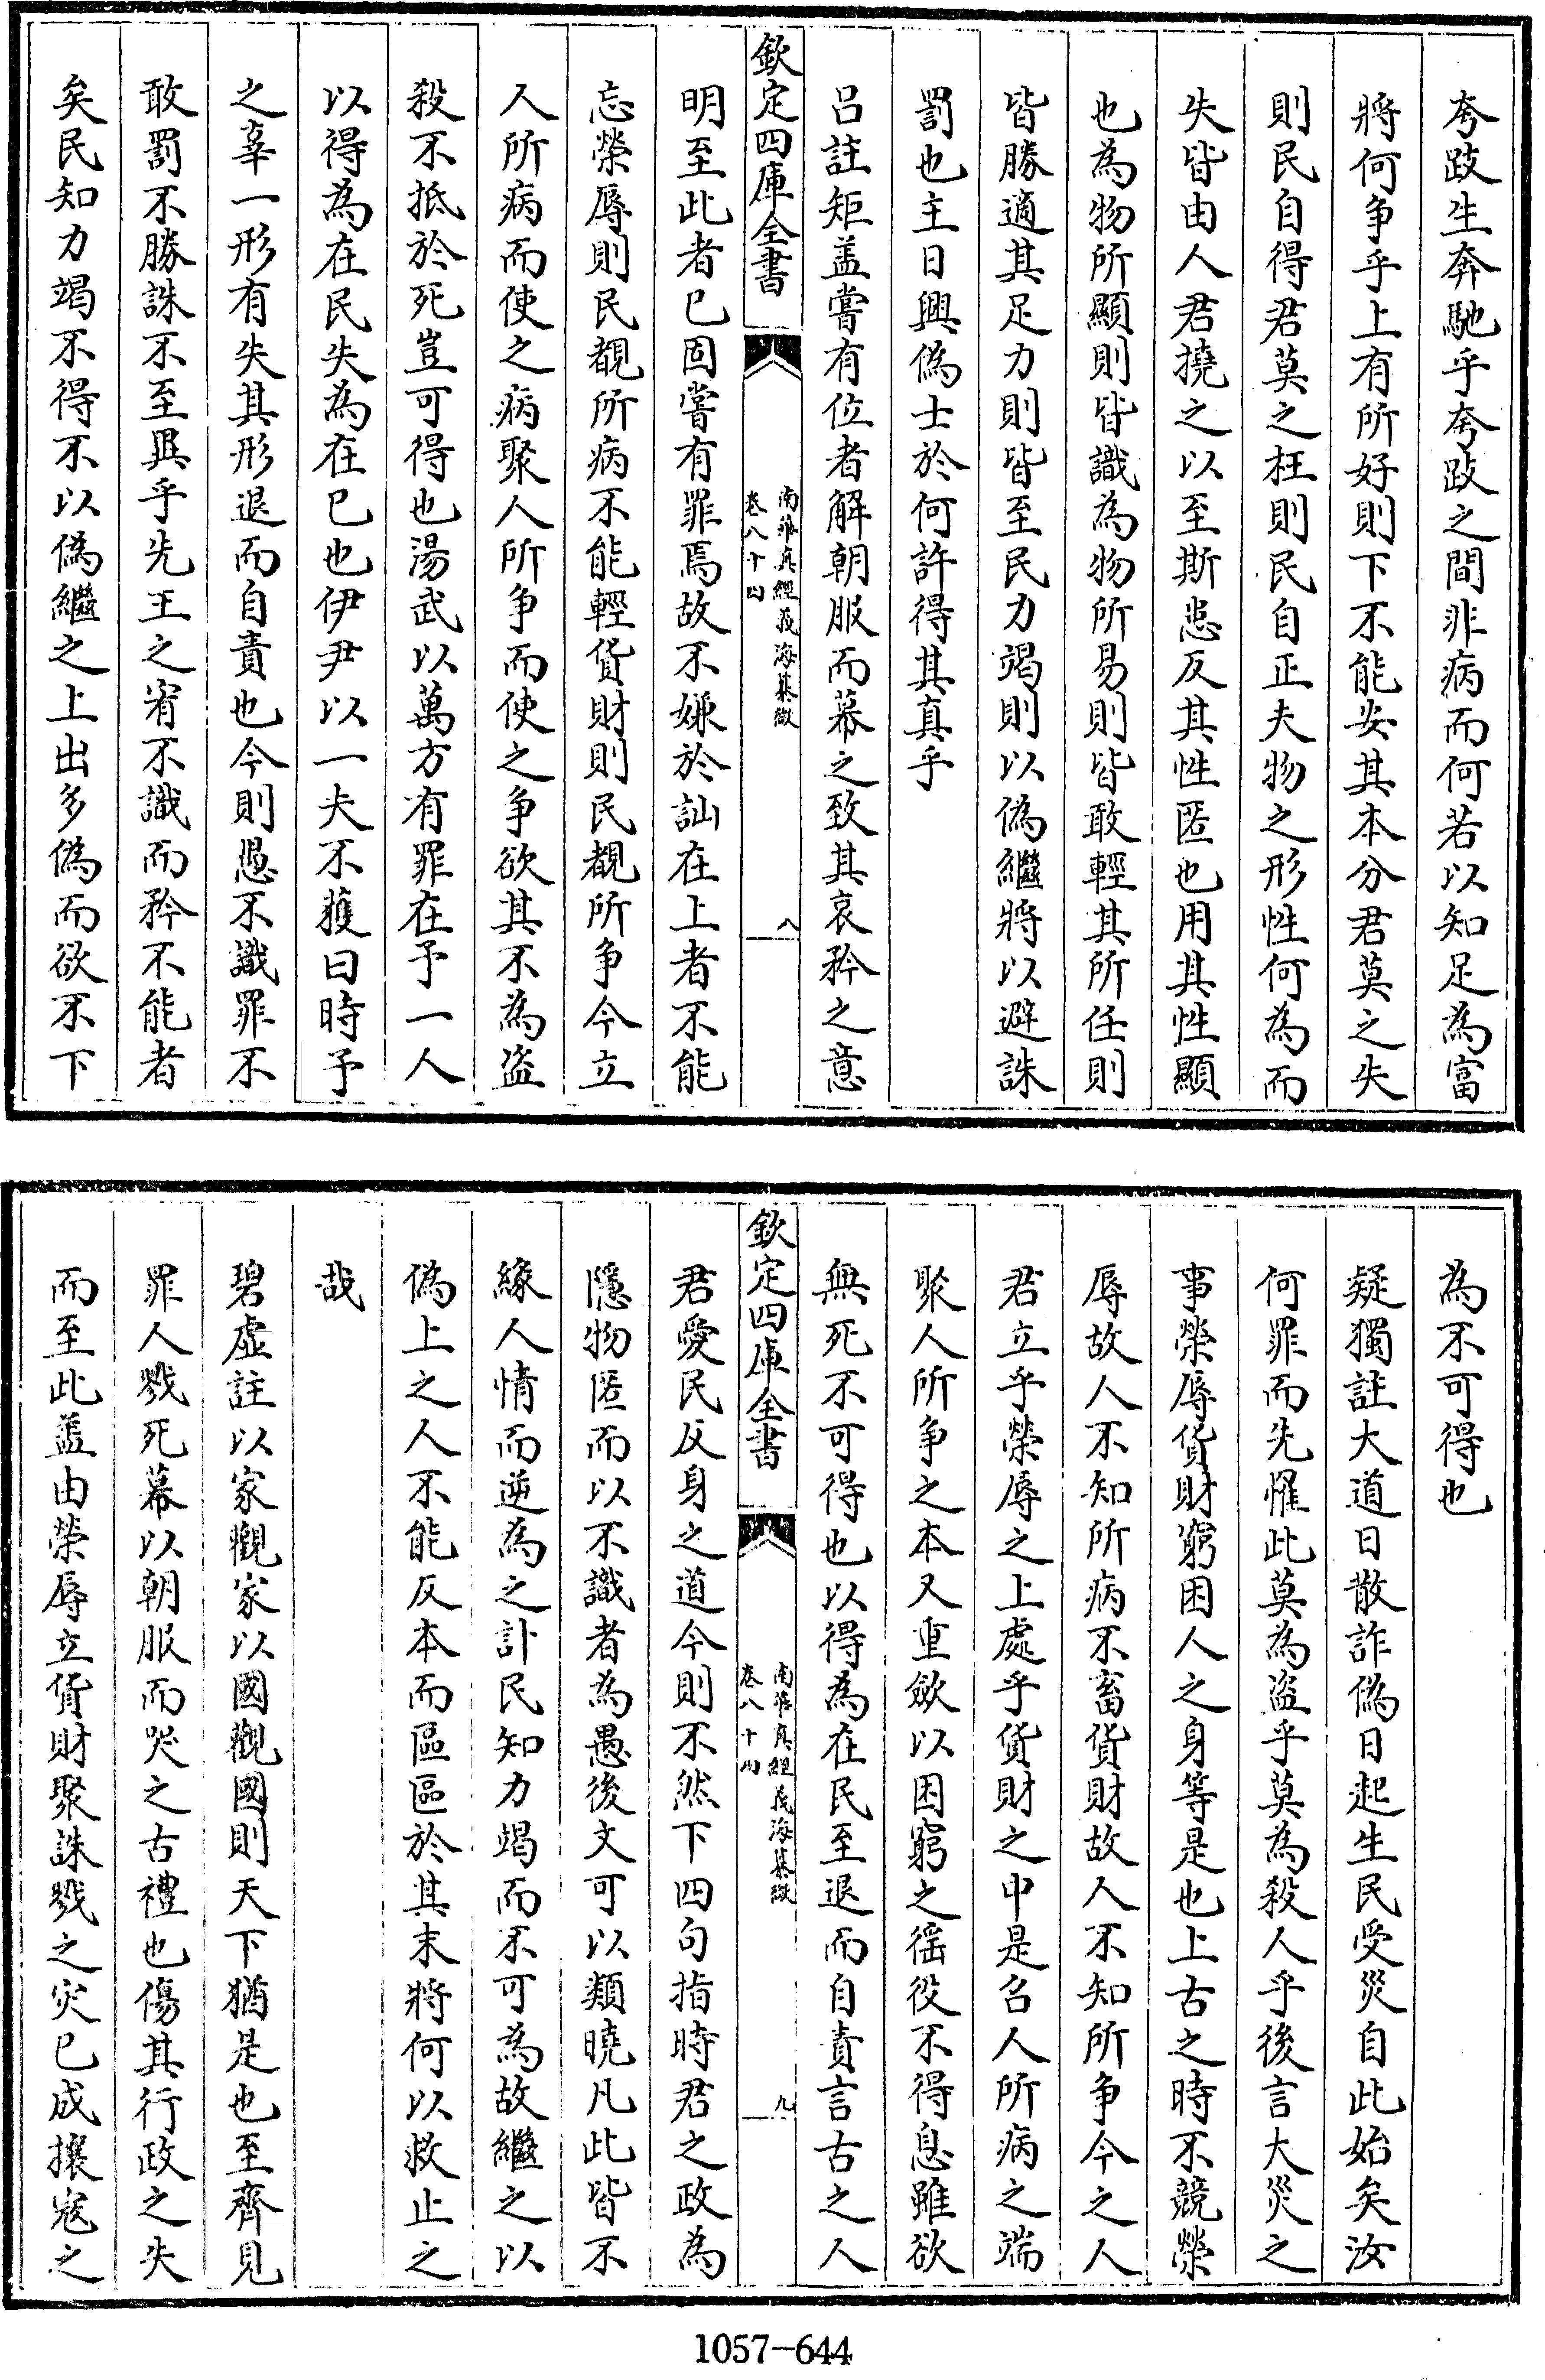 夸跂生奔馳乎夸跂之間非病而何若以知足為富
將何争乎上有所好則下不能安其本分君莫之失
則民自得君莫之枉則民自正夫物之形性何為而
失皆由人君撓之以至斯患反其性匿也用其性顯
也為物所顯則皆識為物所易則皆敢輕其所任則
皆勝適其足力則皆至民力竭則以偽繼將以避誅
罰也主日興偽士於何許得其真乎
吕註矩盖嘗有位者解朝服而幕之致其哀矜之意
欽定四庫全書
南華真經義海纂微
卷八十四
八
明至此者已固嘗有罪焉故不嫌於訕在上者不能
忘榮辱則民覩所病不能輕貨財則民覩所争今立
人所病而使之病聚人所争而使之争欲其不為盜
殺不抵於死豈可得也湯武以萬方有罪在予一人
以得為在民失為在已也伊尹以一夫不獲曰時予
之辜一形有失其形退而自責也今則愚不識罪不
敢罰不勝誅不至異乎先王之宥不識而矜不能者
矣民知力竭不得不以偽繼之上出多偽而欲不下
為不可得也
疑獨註大道日散詐偽日起生民受災自此始矣汝
何罪而先罹此莫為盜乎莫為殺人乎後言大災之
事榮辱貨財窮困人之身等是也上古之時不競榮
辱故人不知所病不畜貨財故人不知所争今之人
君立乎榮辱之上處乎貨財之中是召人所病之端
聚人所争之本又重歛以困窮之徭役不得息雖欲
無死不可得也以得為在民至退而自責言古之人
欽定四庫全書
南華真經義海纂微
卷八十四
九
君愛民反身之道今則不然下四句指時君之政為
隱物匿而以不識者為愚後文可以類曉凡此皆不
緣人情而逆為之訃民知力竭而不可為故繼之以
偽上之人不能反本而區區於其末將何以救止之
哉
碧虛註以家觀家以國觀國則天下猶是也至齊見
罪人戮死幕以朝服而哭之古禮也傷其行政之失
而至此盖由榮辱立貨財聚誅戮之灾已成攘寇之
1057-644